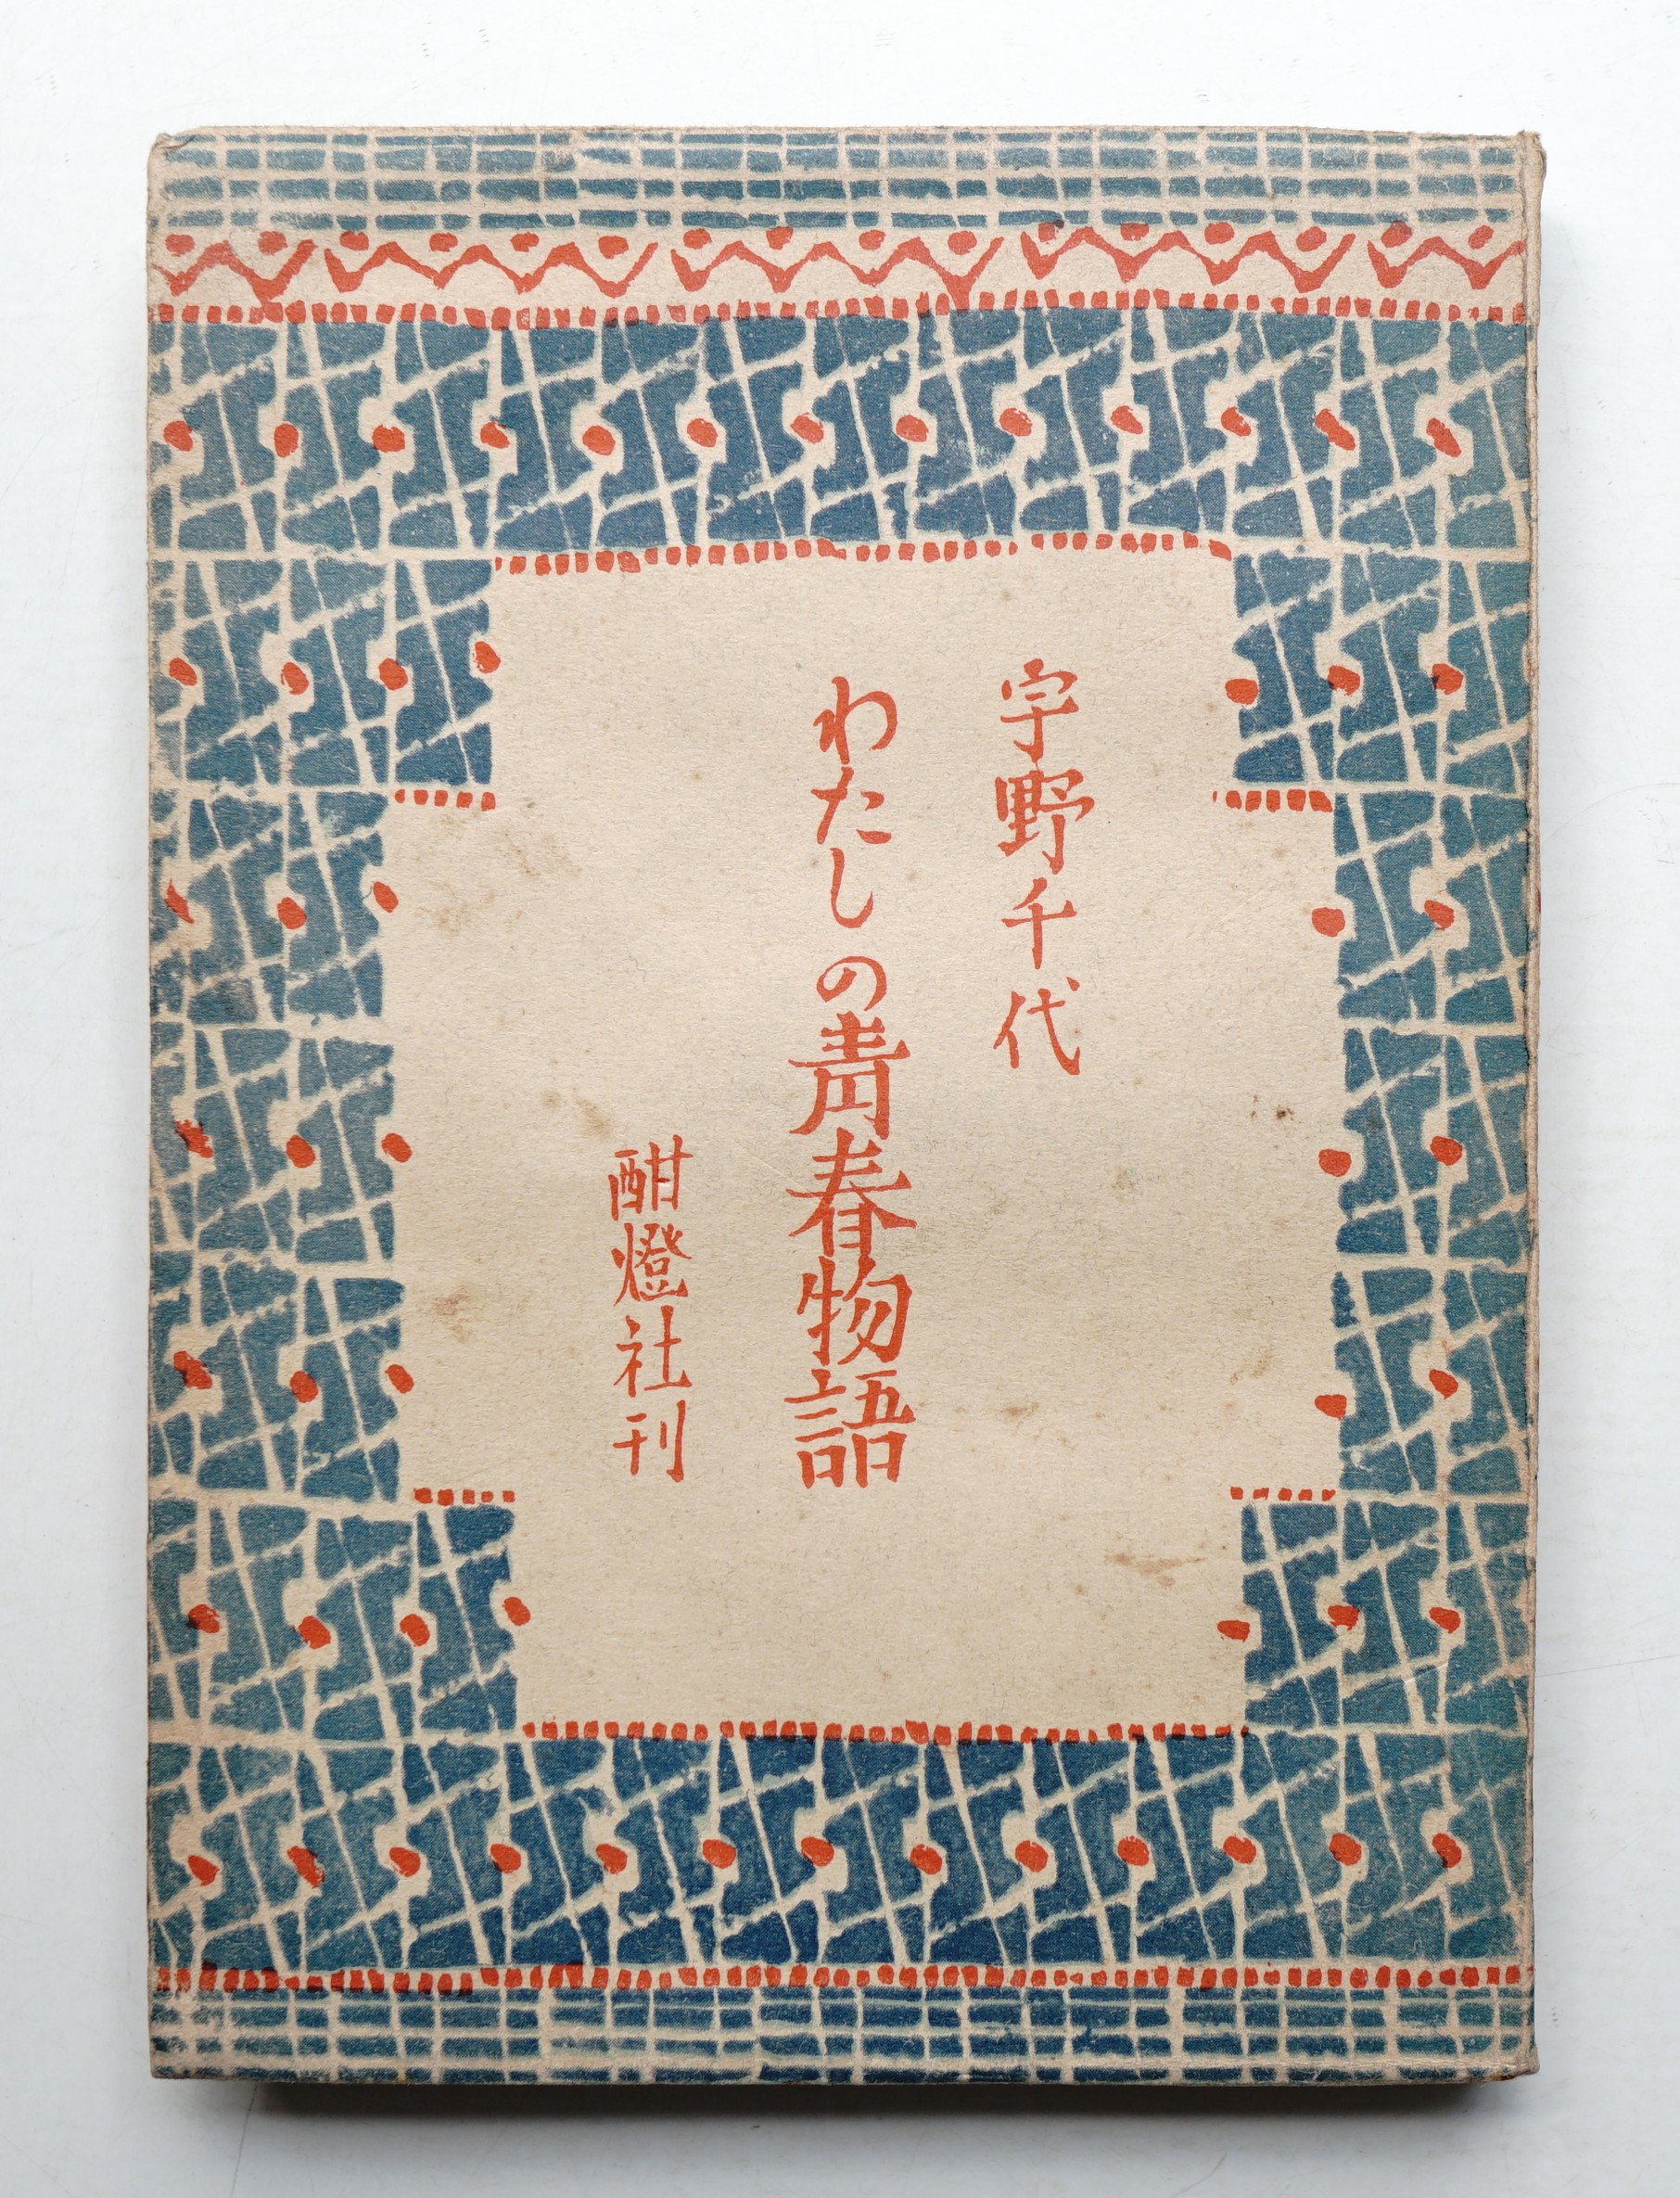 宇野千代
わたしの靑春物語
酣燈社刊